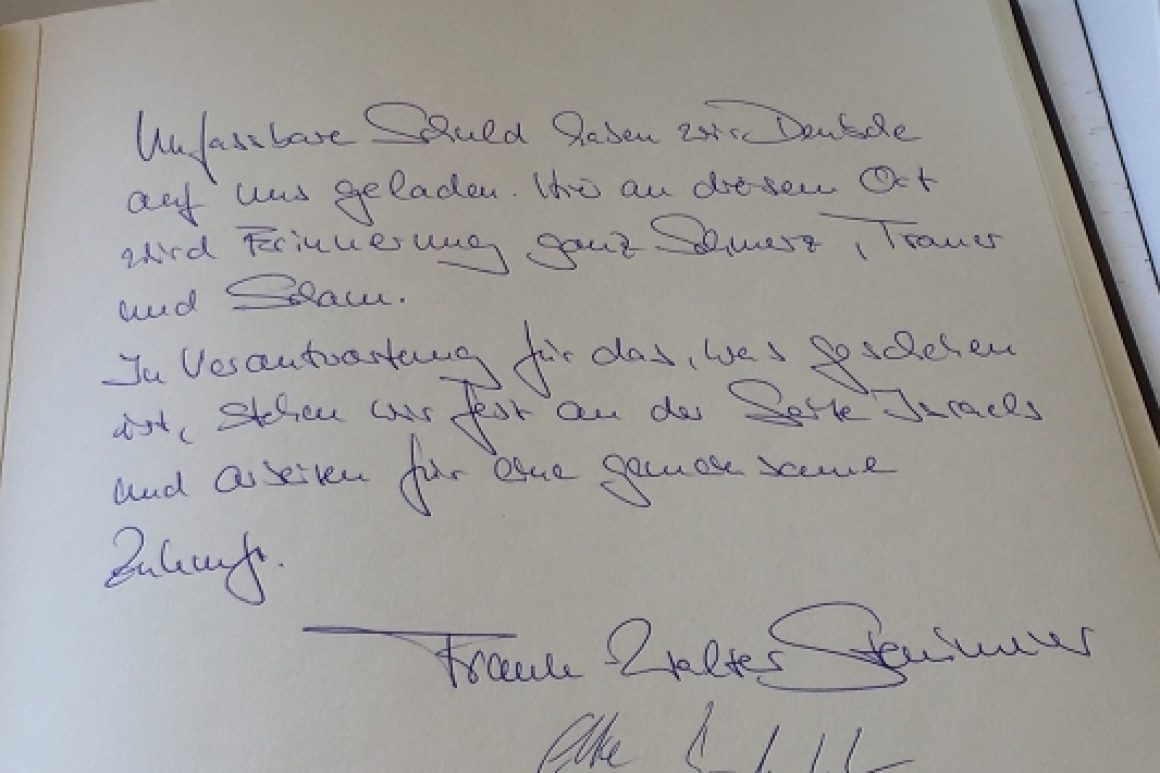 Unfassbare Schuld haben wir Deutsche
auf uns geladen. Hier an diesem Ort
wird Erinnerung ganz Schmerz, Trauer
und Scham.
In Verantwortung für das, was geschehen
ist, stehen wir fest an der Seite Israels
und arbeiten für eine gemeinsame
Zukunft.
Frank Walter Steinmeier
Elke